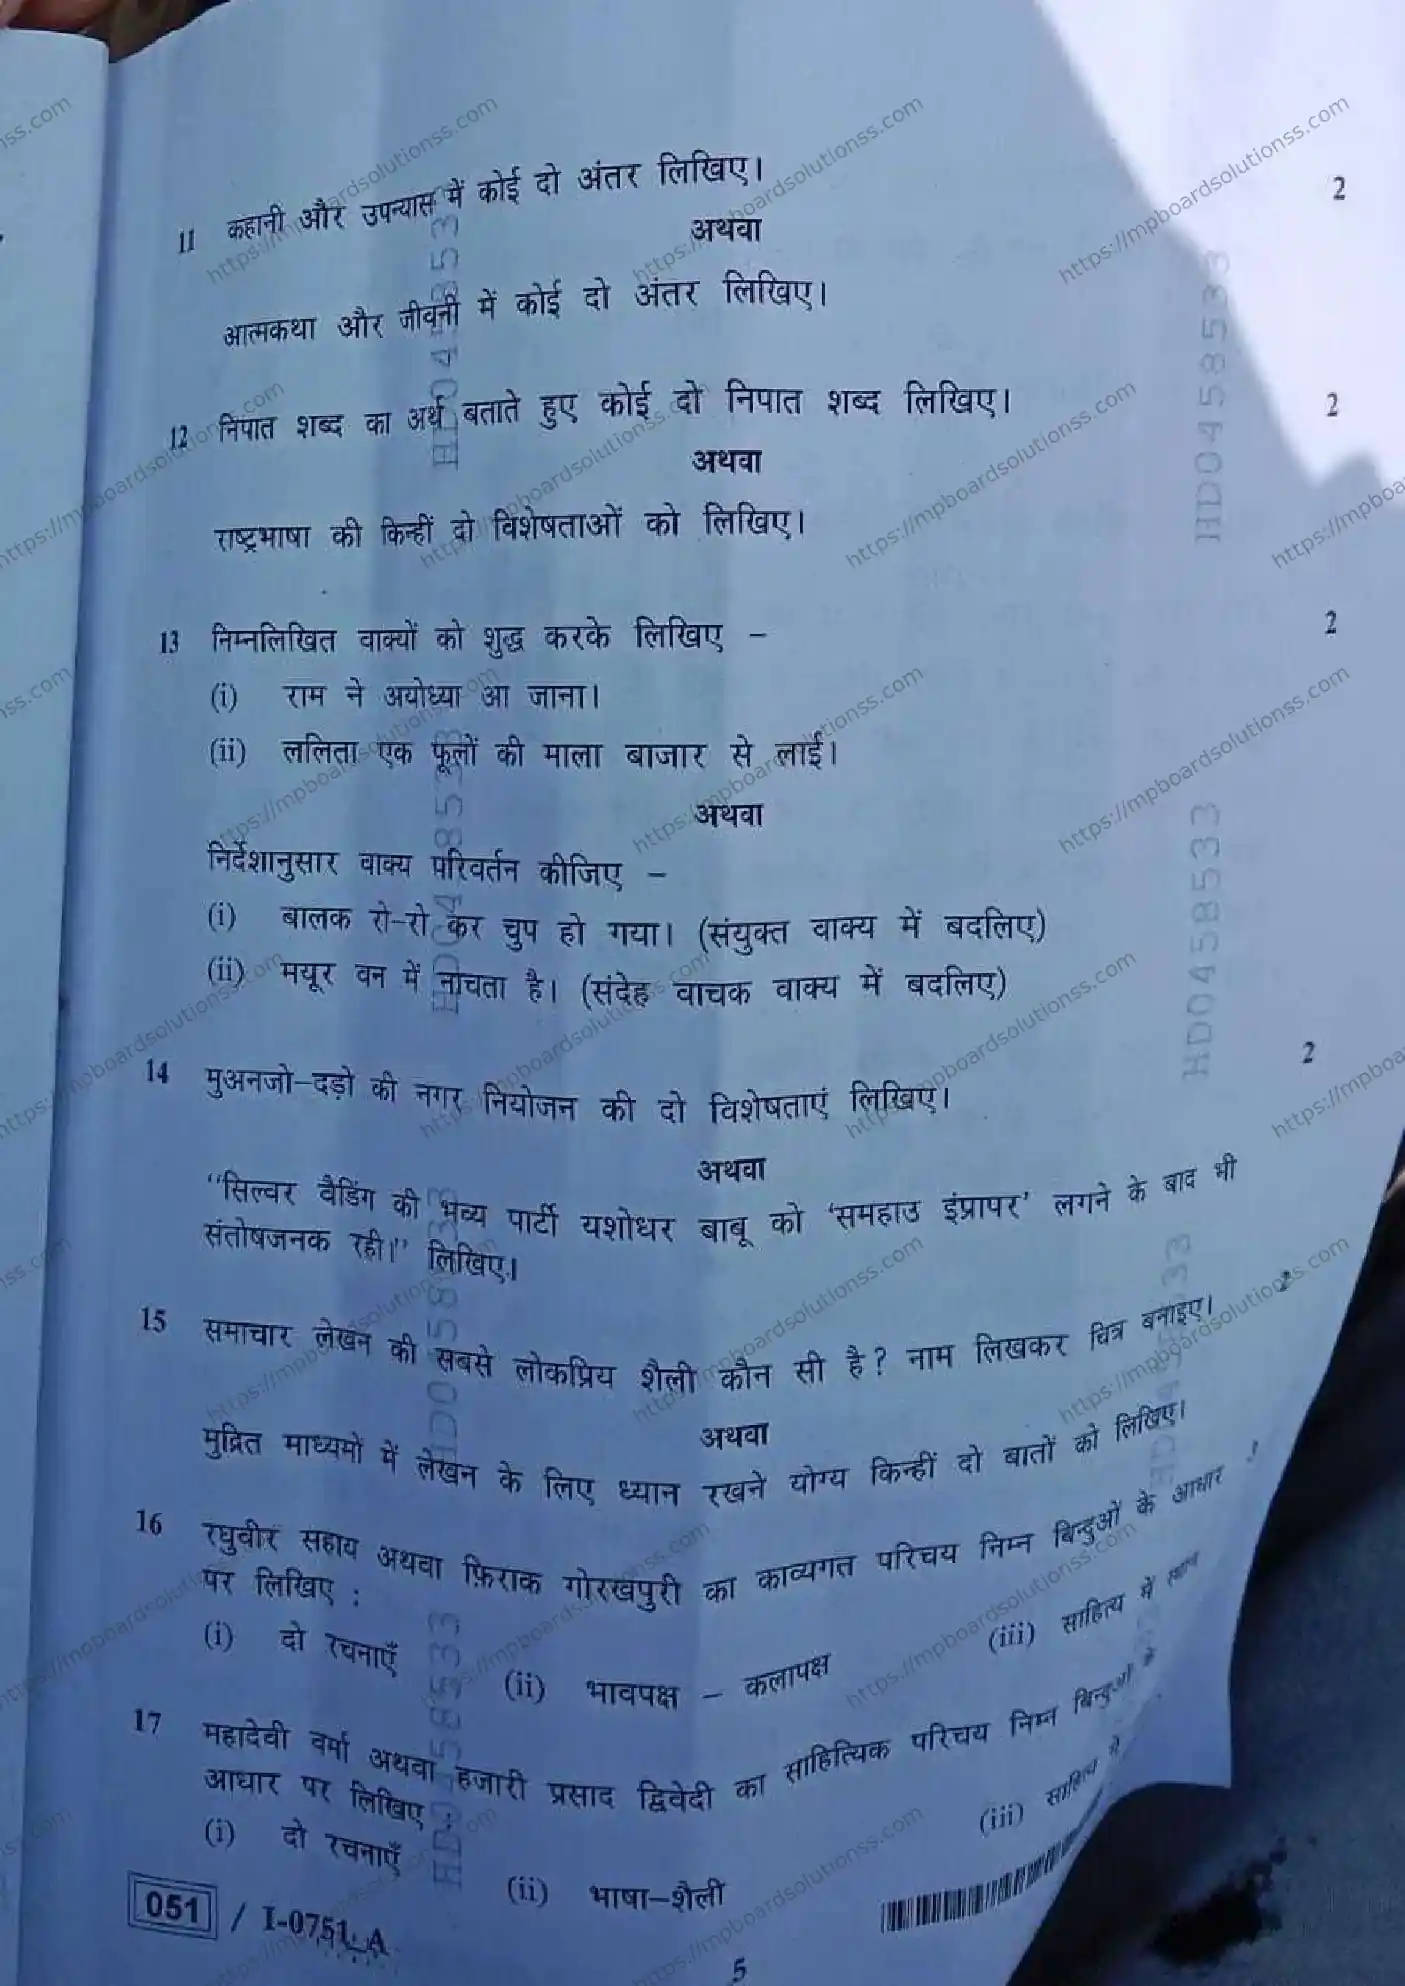 11 कहानी और उपन्यास में कोई दो अंतर लिखिए। 2
अथवा
आत्मकथा और जीवनी में कोई दो अंतर लिखिए।
12 निपात शब्द का अर्थ बताते हुए कोई दो निपात शब्द लिखिए। 2
अथवा
राष्ट्रभाषा की किन्हीं दो विशेषताओं को लिखिए।
13 निम्नलिखित वाक्यों को शुद्ध करके लिखिए – 2
(i) राम ने अयोध्या आ जाना।
(ii) ललिता एक फूलों की माला बाजार से लाई।
अथवा
निर्देशानुसार वाक्य परिवर्तन कीजिए –
(i) बालक रो-रो कर चुप हो गया। (संयुक्त वाक्य में बदलिए)
(ii) मयूर वन में नाचता है। (संदेह वाचक वाक्य में बदलिए)
14 मुअनजो-दड़ो की नगर नियोजन की दो विशेषताएं लिखिए। 2
अथवा
“सिल्वर वैडिंग की भव्य पार्टी यशोधर बाबू को ‘समहाउ इंप्रापर’ लगने के बाद भी
संतोषजनक रही।” लिखिए।
15 समाचार लेखन की सबसे लोकप्रिय शैली कौन सी है? नाम लिखकर चित्र बनाइए। 2
अथवा
मुद्रित माध्यमों में लेखन के लिए ध्यान रखने योग्य किन्हीं दो बातों को लिखिए।
16 रघुवीर सहाय अथवा फ़िराक गोरखपुरी का काव्यगत परिचय निम्न बिन्दुओं के आधार
पर लिखिए :
(i) दो रचनाएँ (ii) भावपक्ष – कलापक्ष (iii) साहित्य में स्थान
17 महादेवी वर्मा अथवा हजारी प्रसाद द्विवेदी का साहित्यिक परिचय निम्न बिन्दुओं के
आधार पर लिखिए
(i) दो रचनाएँ (ii) भाषा-शैली (iii) साहित्य में
051 / I-0751-A
5
HD0458533
HD0458533
https://mpboardsolutionss.com